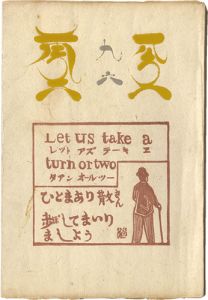 九六
Let us take a
レット アズ テーキ エ
turn or two
タアン オール ツー
ひとまわり散
歩してまいり
ましよう